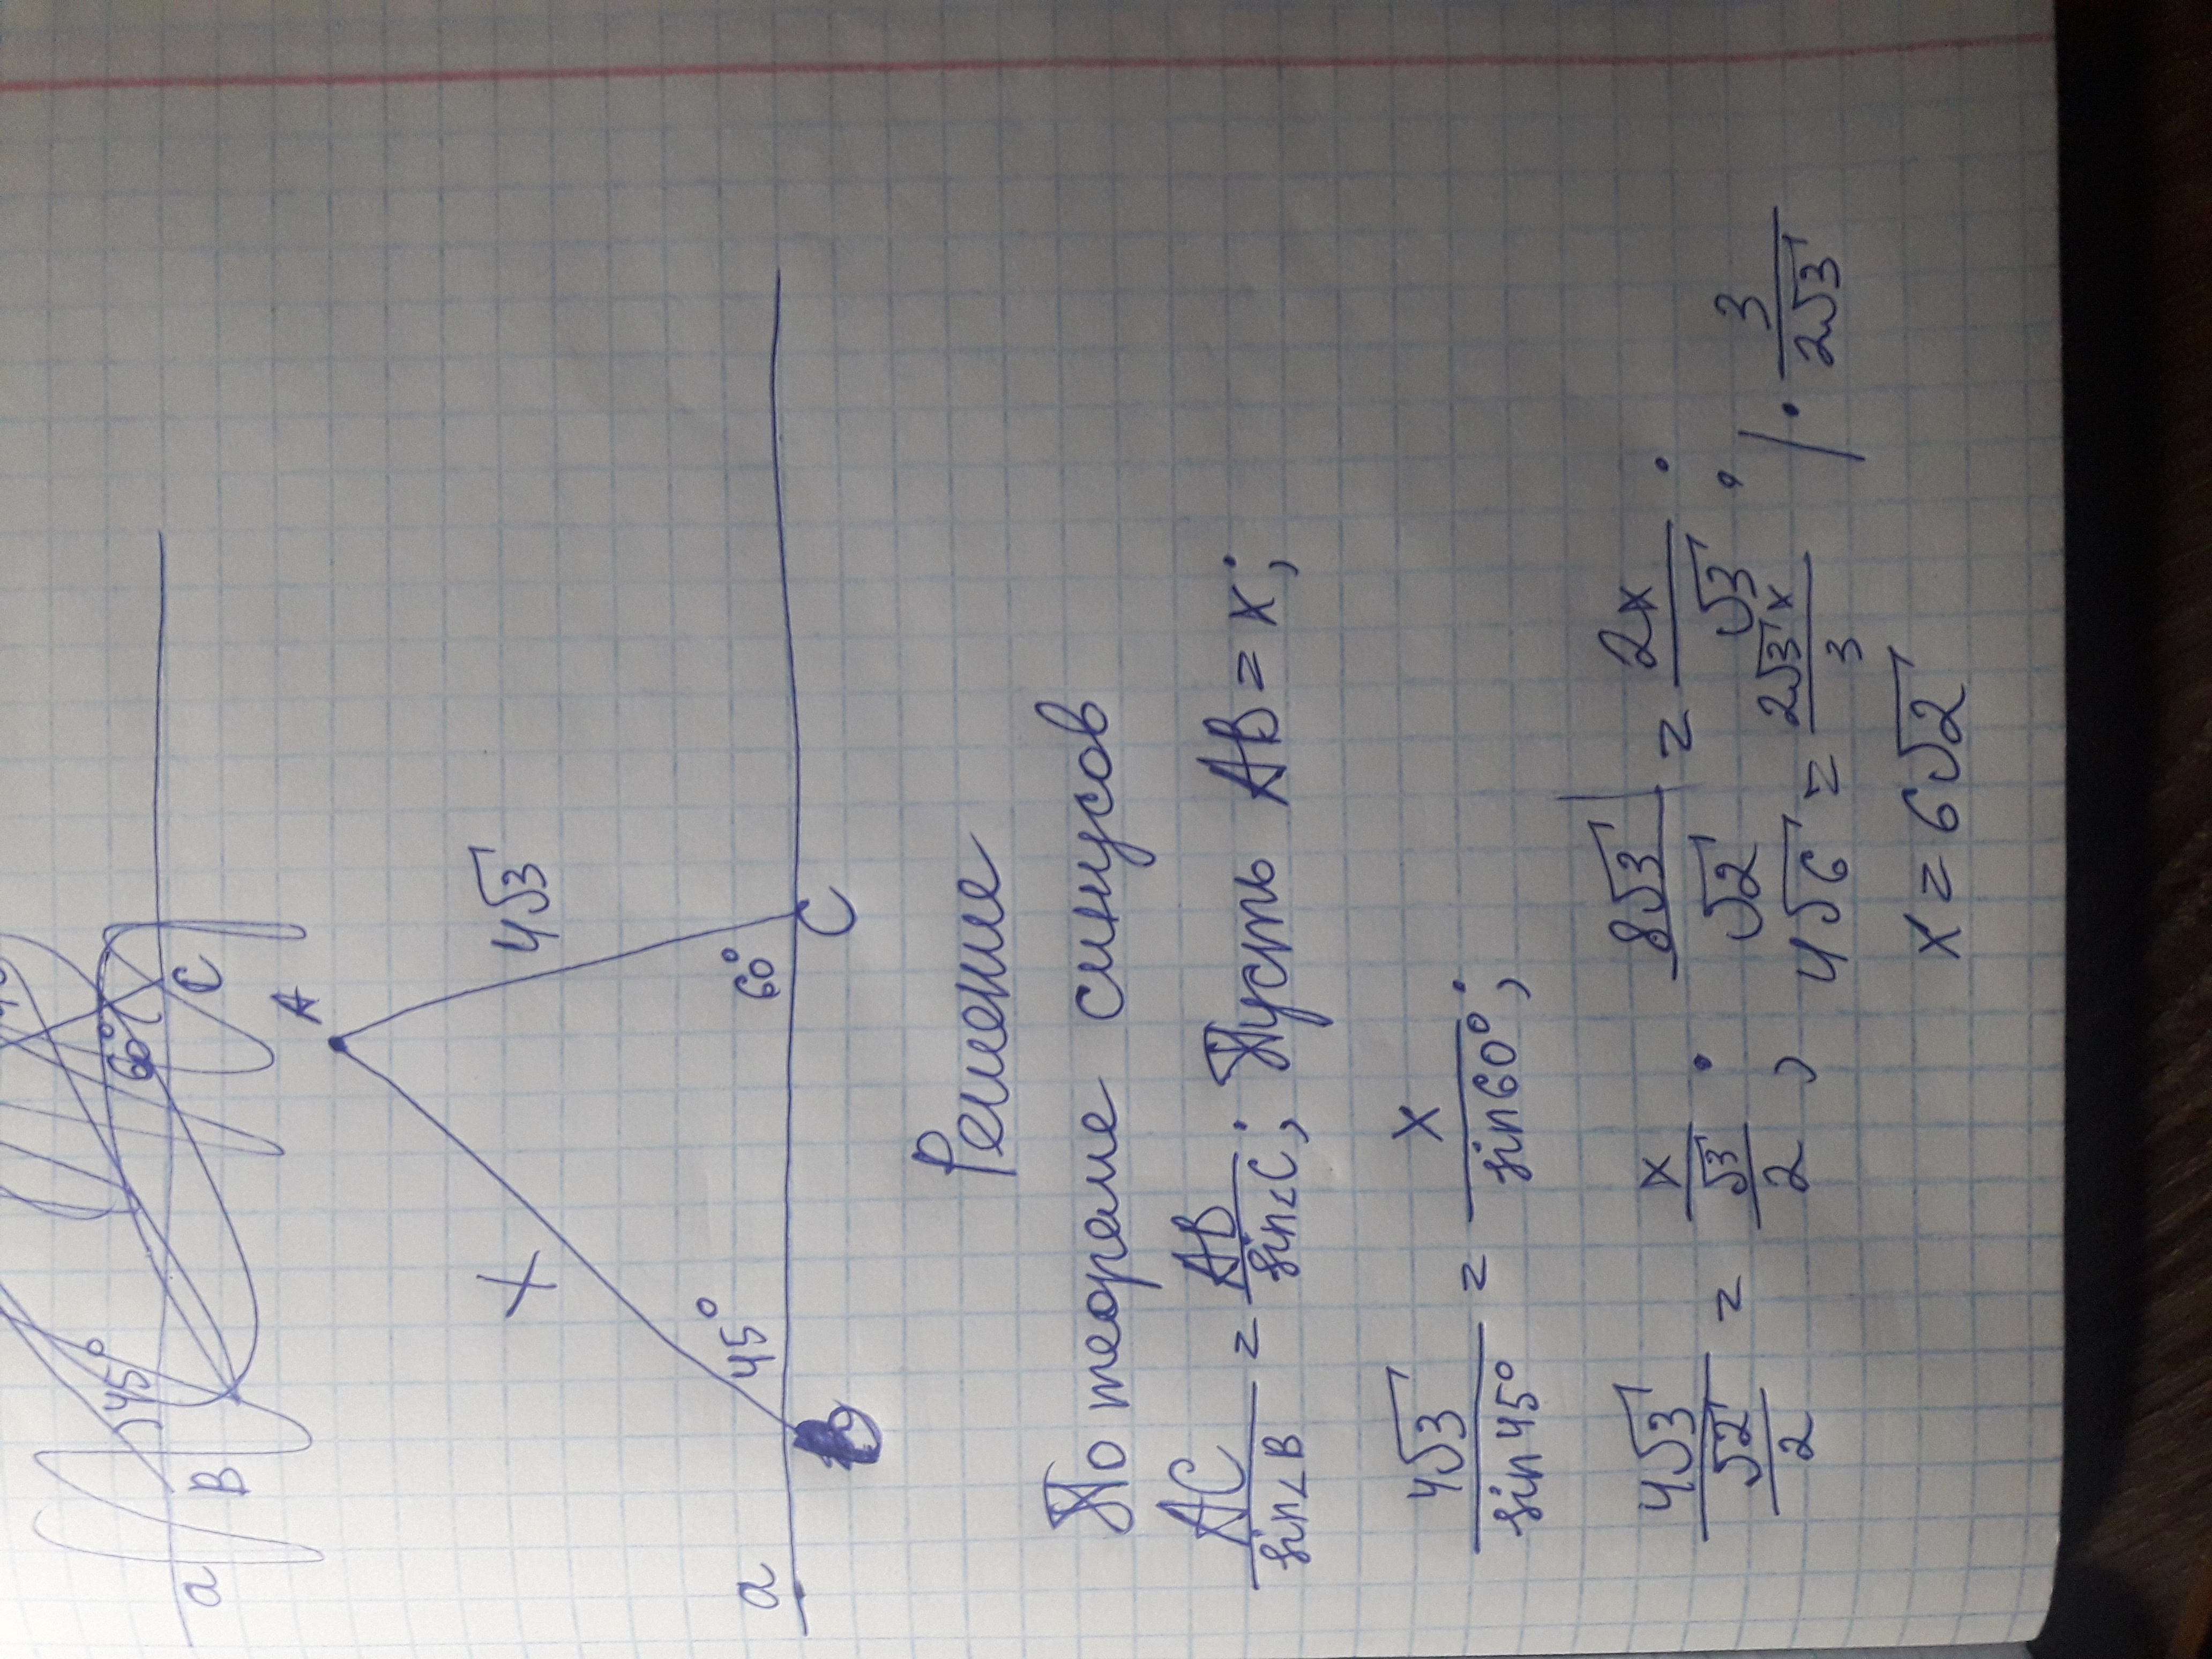 45° 60°
a B C
A
X 4√3
45° 60°
a C
Решение
По теореме синусов
AC/sin∠B = AB/sin∠C; Пусть AB = x;
4√3/sin45° = x/sin60°;
4√3/(√2/2) = x/(√3/2); 8√3/√2 = 2x/√3;
4√6 = 2√3x/3 | · 3/2√3
x = 6√2